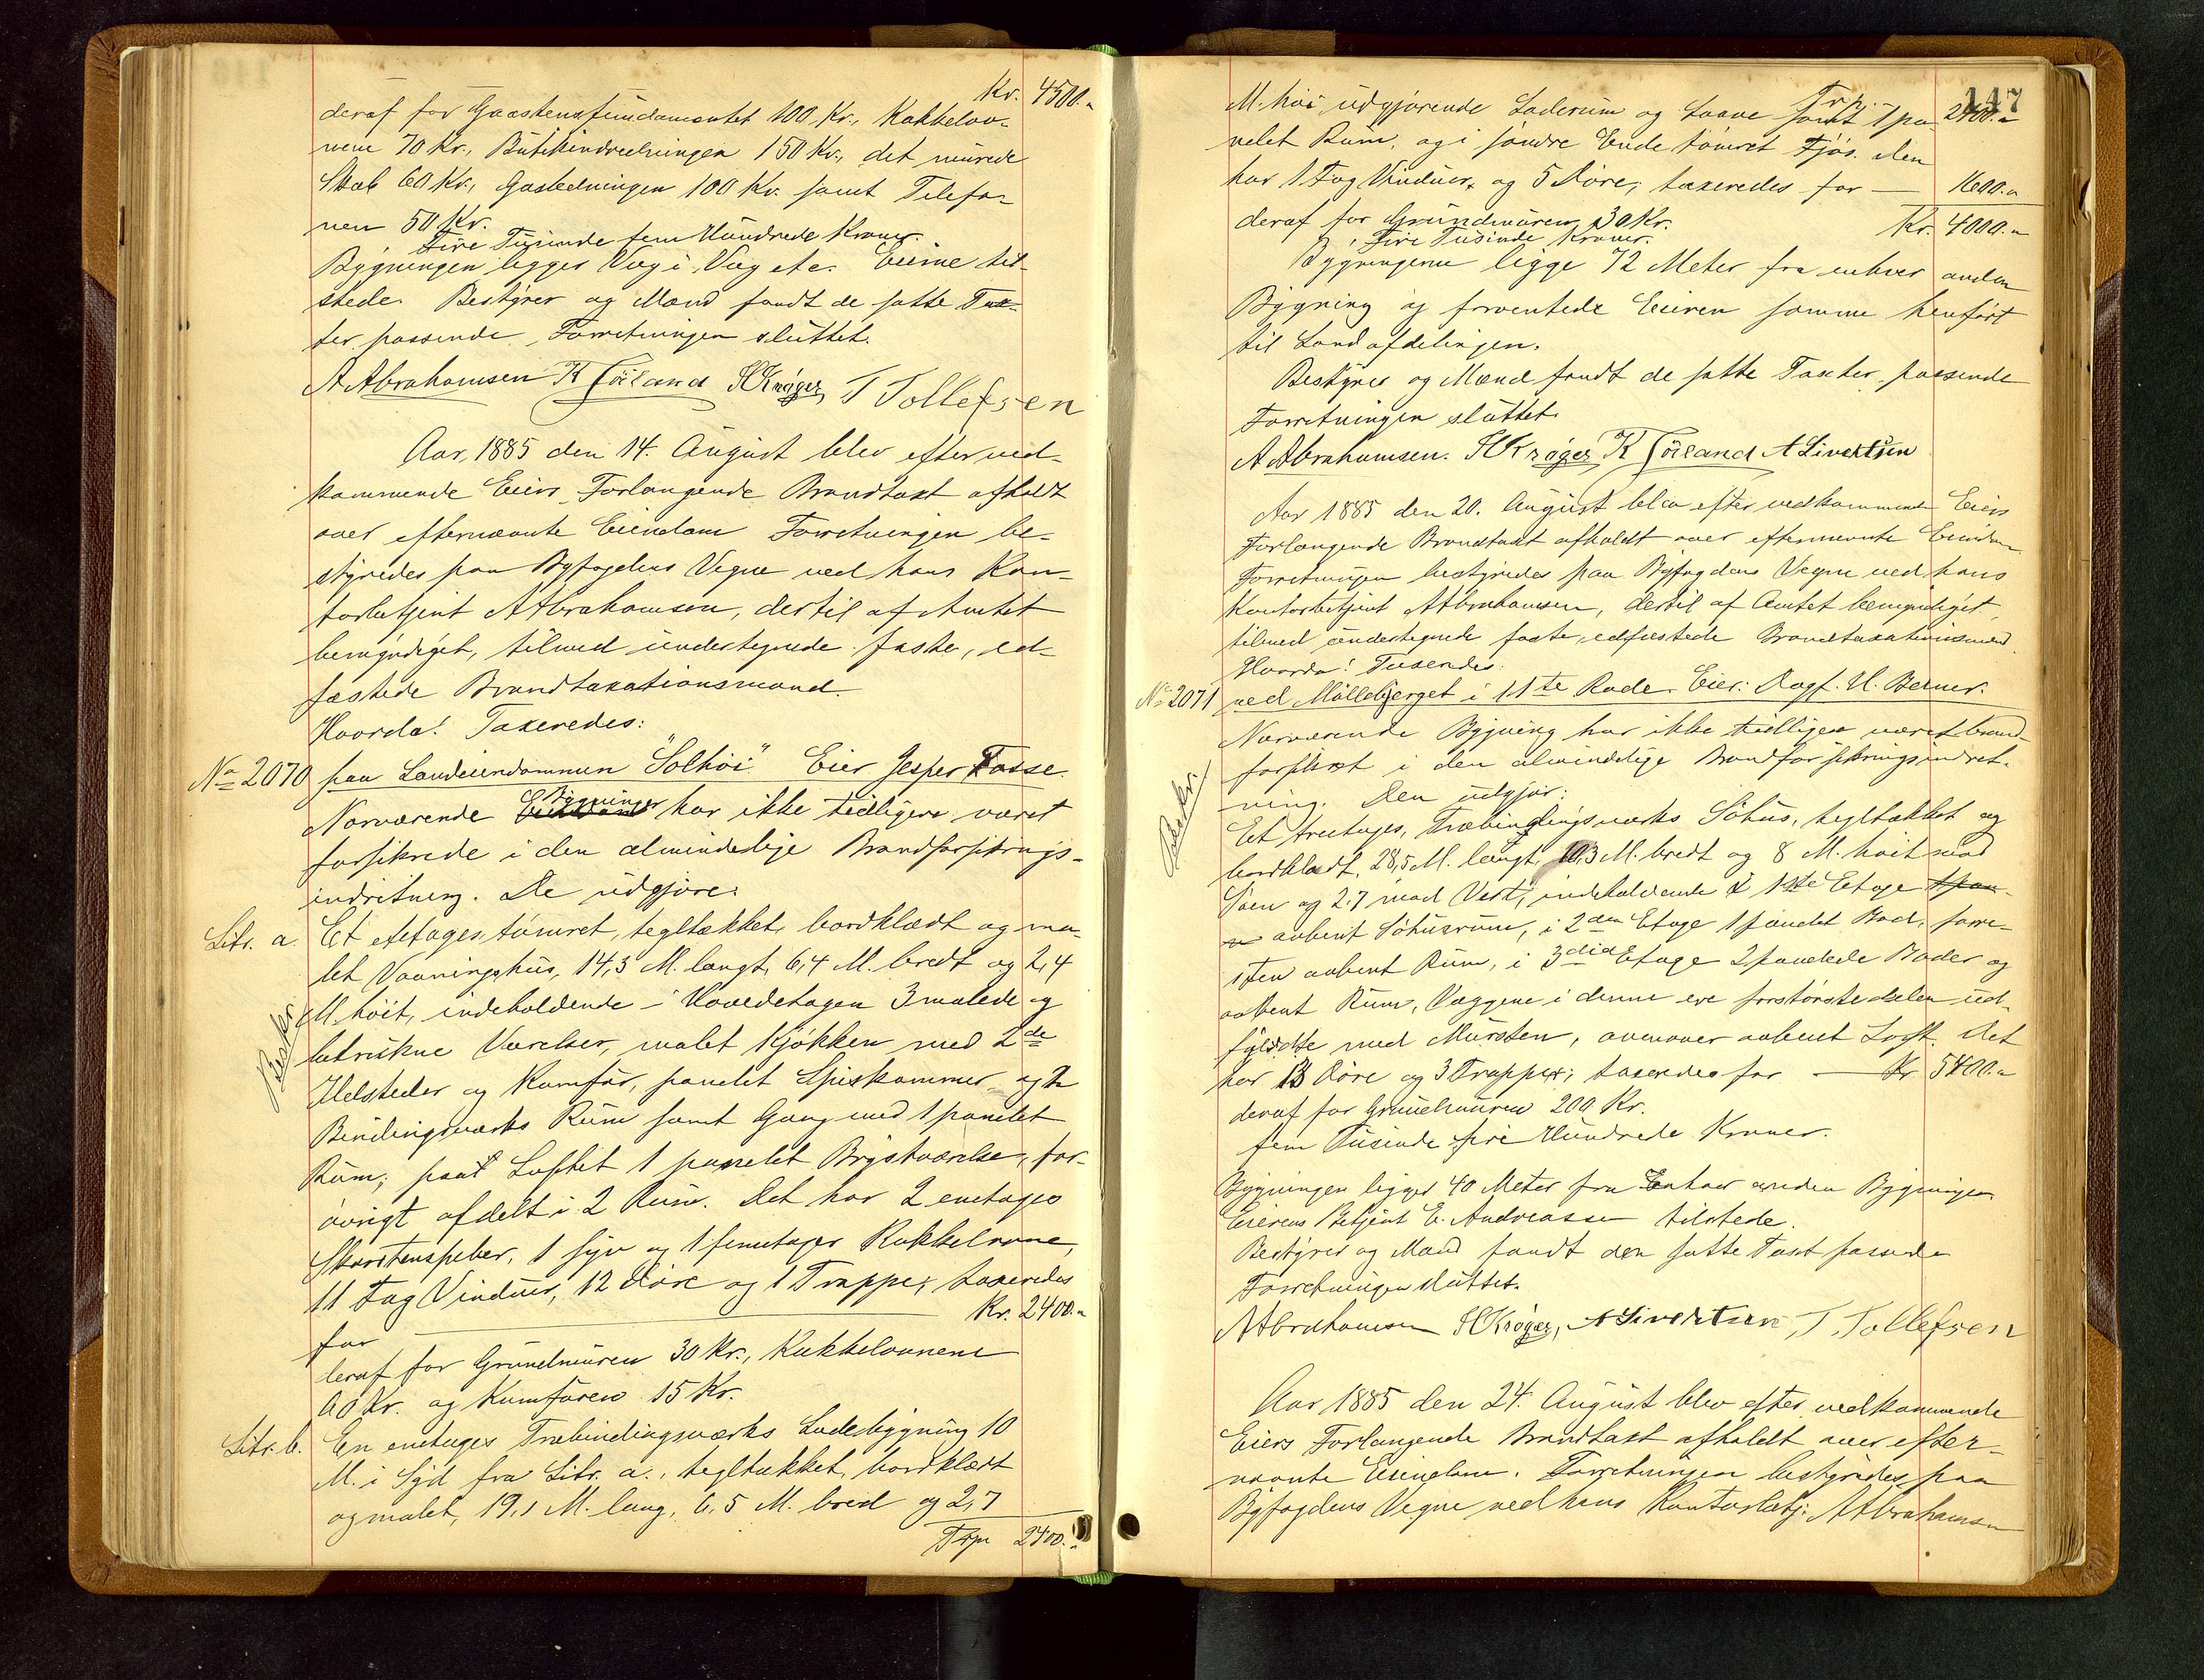 Kr. 4500.-
deraf for Graastensfundamentet 100 Kr., Kakkelov-
nene 70 Kr., Butikindredningen 150 Kr., det murede
Skab 60 Kr., Gasledningen 100 Kr. samt Telefo-
nen 50 Kr.
Fire Tusinde fem Hundrede Kroner.
Bygningen ligger Væg i Væg etc. Eierne til-
stede. Bestyrer og Mænd fandt de satte Tax-
ter passende, Forretningen sluttet.
A Abrahamsen K Joiland H Krøger, T Tollefsen
Aar 1885 den 14. August blev efter ved-
kommende Eiers Forlangende Brandtaxt afholdt
over efternævnte Eiendom. Forretningen be-
styredes paa Byfogdens Vegne ved hans Kon-
torbetjent A Abrahamsen, dertil af Amtet
bemyndiget, tilmed undertegnede faste, ed-
fæstede Brandtaxationsmænd.
Hvorda! Taxeredes:
No 2070 paa Landeiendommen "Solhöi" Eier Jesper Tasse.
Nærværende Bygninger har ikke tidligere været
forsikrede i den almindelige Brandforsikrings-
indretning. De udgjøre:
Litr. a. Et etetages, tømret, tegltækket, bordklædt og ma-
let Vaaningshus, 14,3 M. langt, 6,4 M. bredt og 2,4
M. höit, indeholdende i Hovedetagen 3 malede og
betrukne Værelser, malet Kjøkken med 2de
Ildsteder og Komfur, panelet Spiskammer og 2
Bindingsværks Rum samt Gang med 1 panelet
Rum; paa Loftet 1 panelet Kvistværelse, for-
övrigt afdelt i 2 Rum. Det har 2 enetages
Skorstenspiber, 1 syv og 1 femetages Kakkelovne,
11 Fag Vinduer, 12 Döre og 1 Trappe; taxeredes
for Kr. 2400.-
deraf for Grundmuren 30 Kr., Kakkelovnene
60 Kr. og Komfuren 15 Kr.
Litr. b. En enetages Træbindingsværks Ladebygning 10
M. i Syd fra Litr. a., tegltækket, bordklædt
og malet, 19,1 M. lang, 6,5 M. bred og 2,7
Trp. 2400.-
147
Trp. 2400.-
M. höi udgjørende Laderum og Laave samt 1 pa-
nelet Rum, og i søndre Ende tømret Fjøs. Den
har 1 Fag Vinduer og 5 Döre; taxeredes for — 1600.-
deraf for Grundmuren 30 Kr. Kr. 4000.-
Fire Tusinde Kroner.
Bygningerne ligge 72 Meter fra enhver anden
Bygning og forventede Eieren samme henført
til Landafdelingen.
Bestyrer og Mænd fandt de satte Taxter passende
Forretningen sluttet.
A Abrahamsen. H Krøger K Joiland A Sivertsen
Aar 1885 den 20. August blev efter vedkommende Eiers
Forlangende Brandtaxt afholdt over efternævnte Eiendom
Forretningen bestyredes paa Byfogdens Vegne ved hans
Kontorbetjent A Abrahamsen, dertil af Amtet bemyndiget,
tilmed undertegnede faste, edfæstede Brandtaxationsmænd.
Hvorda! Taxeredes:
No 2071 ved Mølleberget i 11te Rode. Eier: Dagf. H. Berner.
Nærværende Bygning har ikke tidligere været brand-
forsikret i den almindelige Brandforsikringsindret-
ning. Den udgjør:
Et treetages, Træbindingsværks Söhus, tegltækket og
bordklædt, 28,5 M. langt, 10,3 M. bredt og 8 M. höit mod
Søen og 2.7 mod Vest, indeholdende i 1ste Etage
aabent Söhusrum, i 2den Etage 1 panelet Bod, forre-
sten aabent Rum, i 3die Etage 2 panelede Boder og
aabent Rum, Væggene i denne ere forstørstedelen ud-
fyldte med Mursten, ovenover aabent Loft. Det
har 13 Döre og 3 Trapper; taxeredes for — Kr. 5400.-
deraf for Grundmuren 200 Kr.
fem Tusinde fire Hundrede Kroner.
Bygningen ligger 40 Meter fra Enhver anden Bygning
Eierens Betjent E. Andreassen tilstede.
Bestyrer og Mænd fandt den satte Taxt passende
Forretningen sluttet.
A Abrahamsen H Krøger, A Sivertsen, T. Tollefsen
Aar 1885 den 24. August blev efter vedkommende
Eiers Forlangende Brandtaxt afholdt over efter-
nævnte Eiendom. Forretningen bestyredes paa
Byfogdens Vegne ved hans Kontorbetj. A Abrahamsen